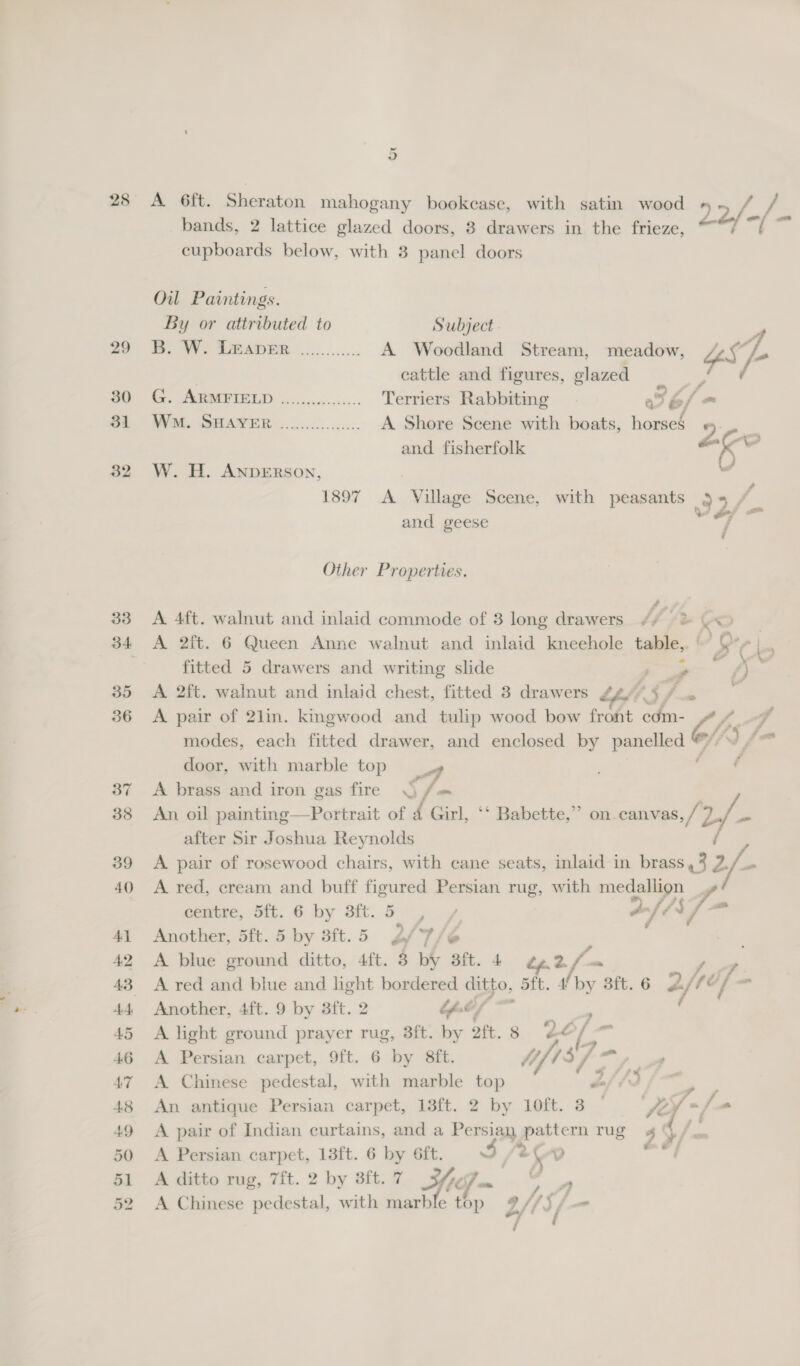 5
28 A 6ft. Sheraton mahogany bookcase, with satin wood 22/-/-
bands, 2 lattice glazed doors, 3 drawers in the frieze,
cupboards below, with 3 panel doors
Oil Paintings.
By or attributed to Subject
29 B. W. LEADER ............ A Woodland Stream, meadow, 45/-
cattle and figures, glazed
30 G. ARMFIELD ............... Terriers Rabbiting 36/-
31 WM. SHAYER ............... A Shore Scene with boats, horses
and fisherfolk
32 W. H. ANDERSON,
1897 A Village Scene, with peasants 32/-
and geese
Other Properties.
33 A 4ft. walnut and inlaid commode of 3 long drawers
34 A 2ft. 6 Queen Anne walnut and inlaid kneehole table,
fitted 5 drawers and writing slide
35 A 2ft. walnut and inlaid chest, fitted 3 drawers
36 A pair of 21in. kingwood and tulip wood bow front com-
modes, each fitted drawer, and enclosed by panelled
door, with marble top
37 A brass and iron gas fire 5/-
38 An oil painting—Portrait of a Girl, “Babette,” on canvas, 12/-
after Sir Joshua Reynolds
39 A pair of rosewood chairs, with cane seats, inlaid in brass 32/-
40 A red, cream and buff figured Persian rug, with medallion
centre, 5ft. 6 by 3ft. 5 2/15/-
41 Another, 5ft. 5 by 3ft. 5 2/7/6
42 A blue ground ditto, 4ft. 3 by 3ft. 4 42/-
43 A red and blue and light bordered ditto, 5ft. 4 by 3ft. 6 2/10/-
44 Another, 4ft. 9 by 3ft. 2 40/-
45 A light ground prayer rug, 3ft. by 2ft. 8 20/-
46 A Persian carpet, 9ft. 6 by 8ft. 11/15/-
47 A Chinese pedestal, with marble top 2/15/-
48 An antique Persian carpet, 13ft. 2 by 10ft. 3
49 A pair of Indian curtains, and a Persian pattern rug
50 A Persian carpet, 13ft. 6 by 6ft.
51 A ditto rug, 7ft. 2 by 3ft. 7 3/10/-
52 A Chinese pedestal, with marble top 2/15/-